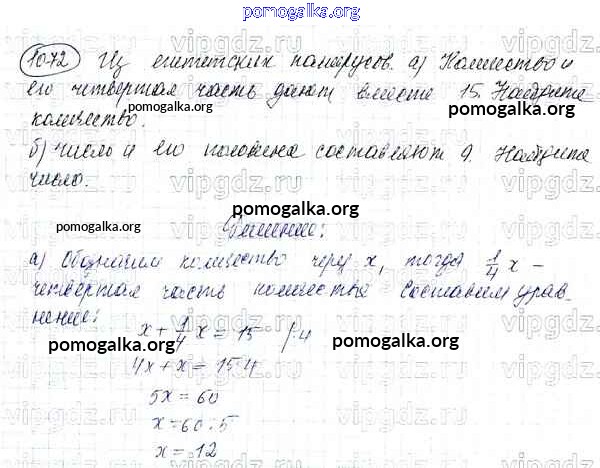 pomogalka.org
1072 Из египетских папирусов. а) Количество и
его четвёртая часть дают вместе 15. Найдите
количество.
pomogalka.org
б) Число и его половина составляют 9. Найдите
число.
pomogalka.org
Решение:
а) Обозначим количество через x, тогда 1/4 x –
четвёртая часть количества. Составим урав-
нение:
x + 1/4 x = 15 /·4
pomogalka.org
4x + x = 15·4
pomogalka.org
5x = 60
x = 60:5
x = 12